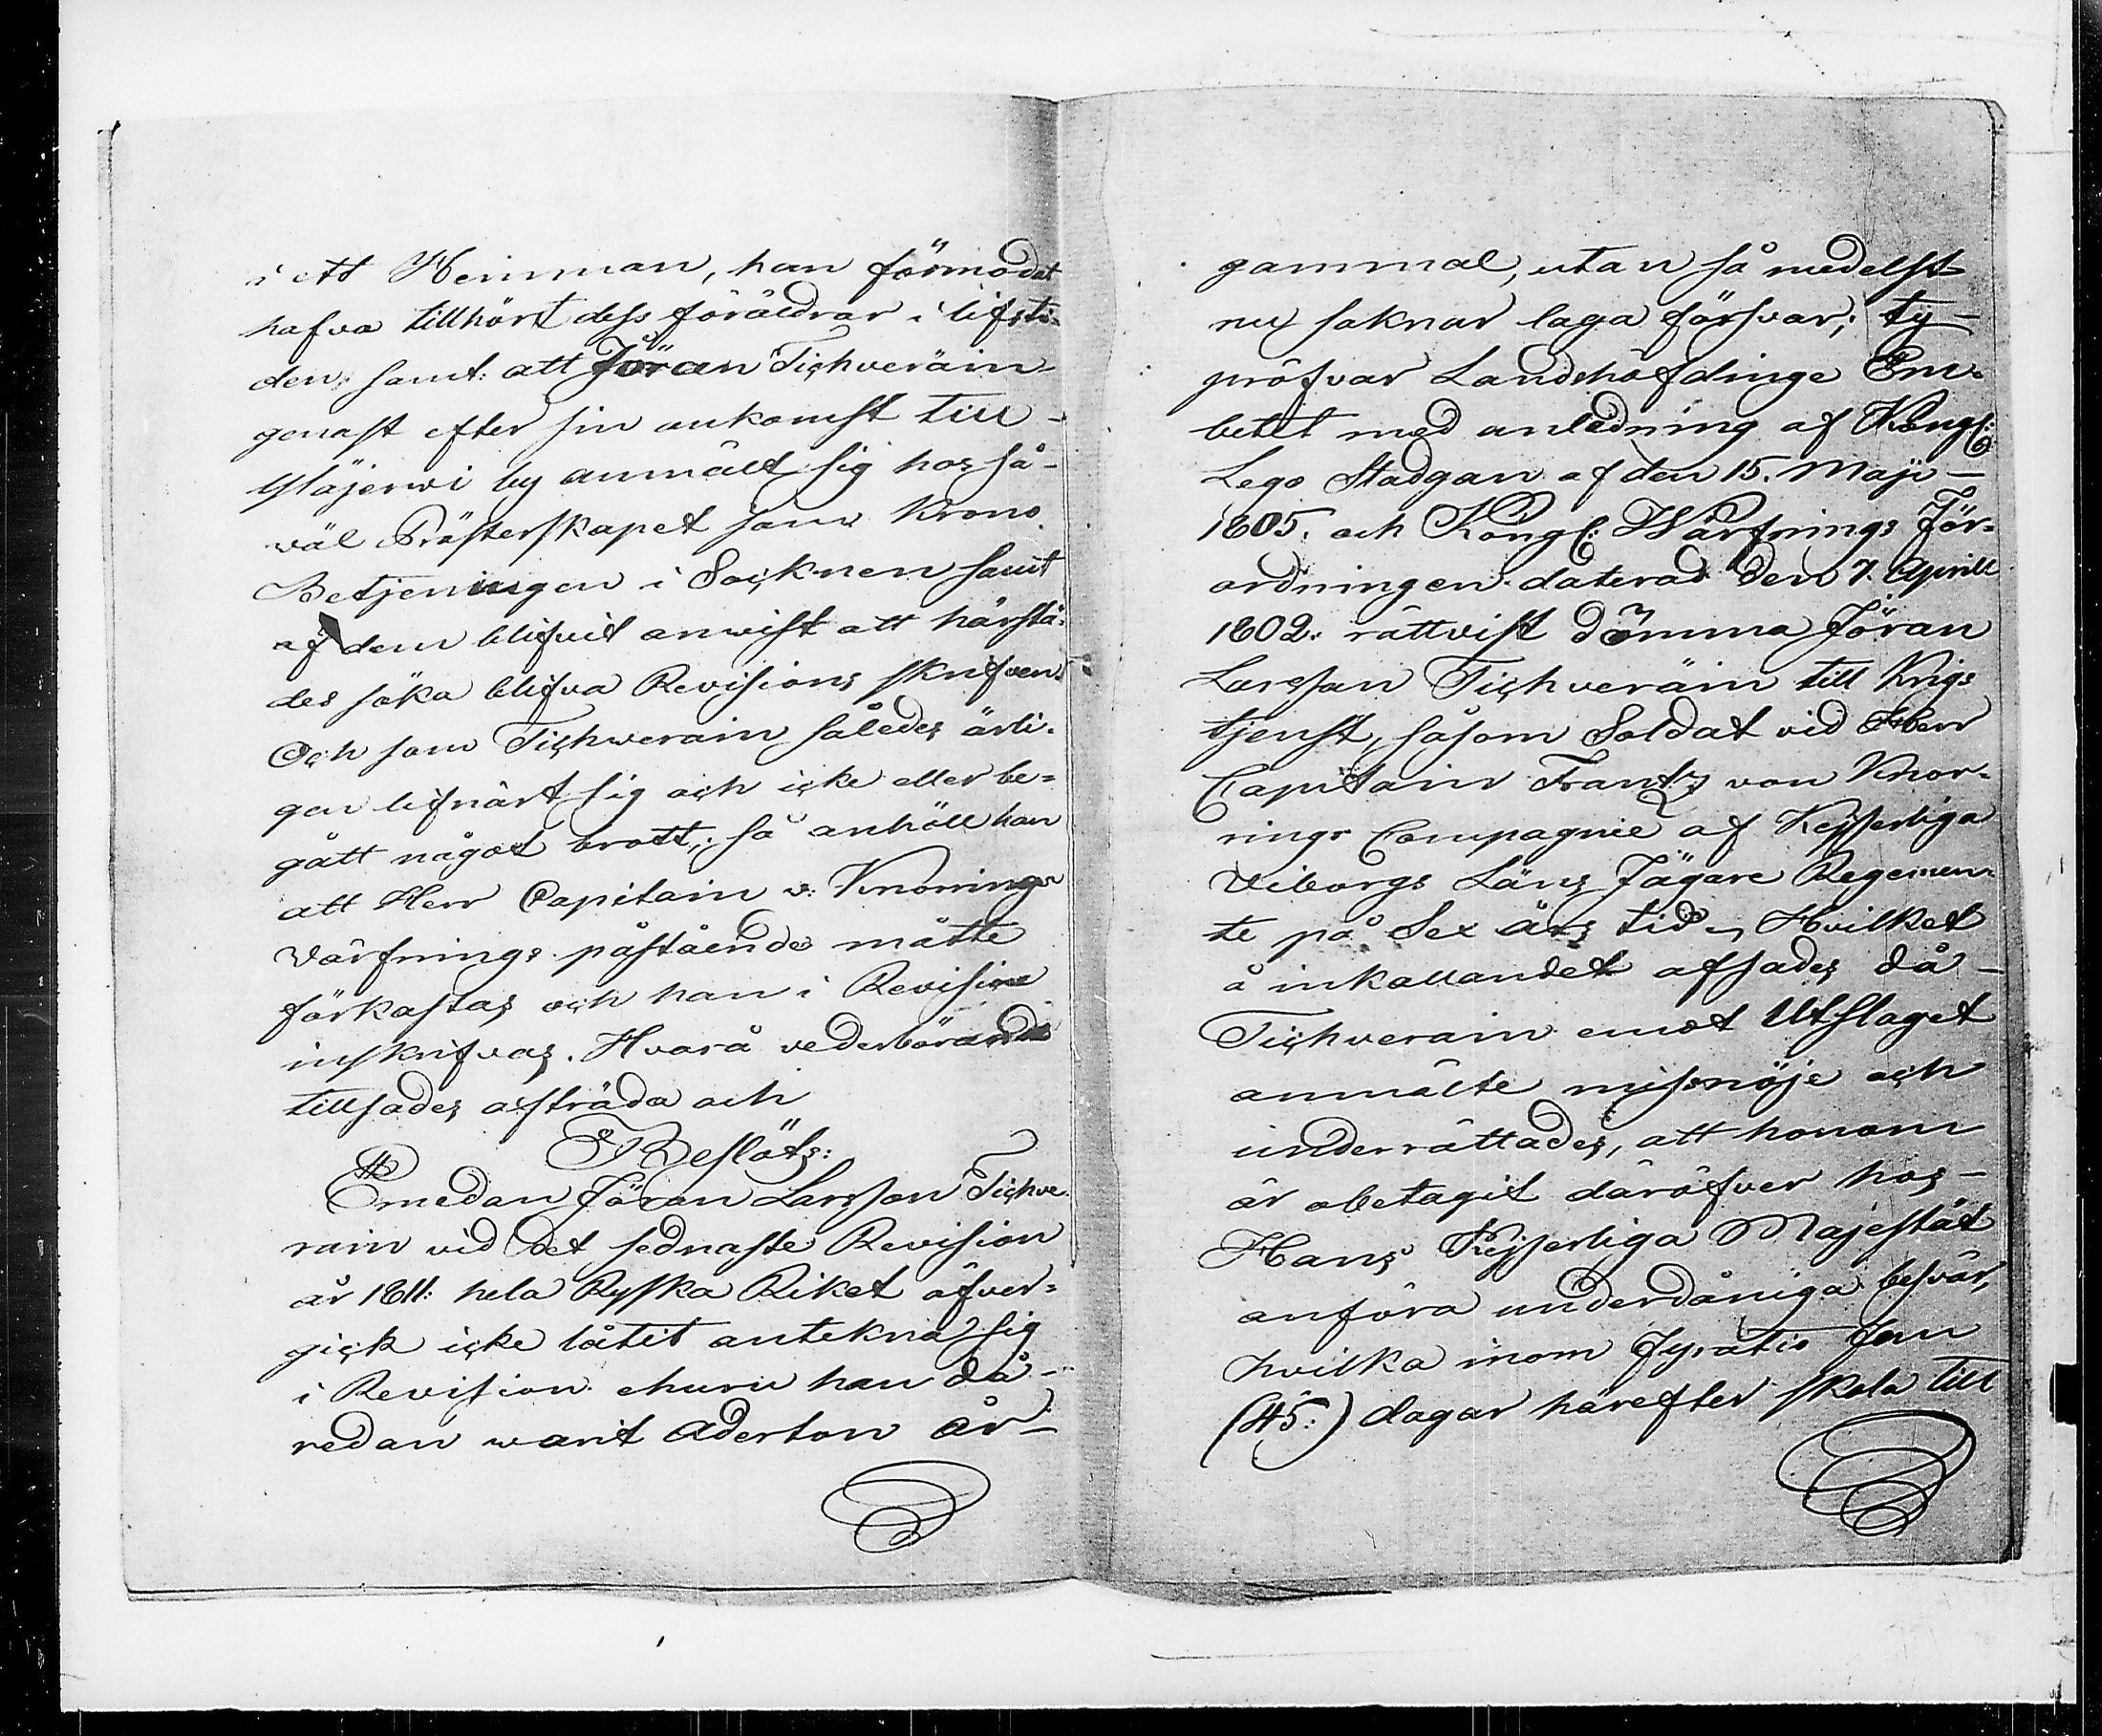 i ett Hemman, han förmodat
hafva tillhört dess föräldrar i lifsti-
den, samt att Jöran Tichveräin
genast efter sin ankomst till
Yläjerwi by anmält sig hos så-
väl Prästerskapet som Krono
Betjeningen i Socknen samt
af dem blifvit anvist att härstä-
des söka blifva Revisions skrifven.
Och som Tichverain således ärli-
gen lifnärt sig och icke eller be-
gått något brott; så anhöll han
att Herr Capitain v: Knorrings
Värfnings påstående måtte
förkastas och han i Revision
inskrifvas. Hvarå vederbörande
tillsades afträda och
Beslöts:
Emedan Jöran Larsson Tichve-
rain vid det sednaste Revision
år 1811: hela Ryska Riket öfver-
gick icke låtit antekna sig
i Revision ehuru han då
redan warit Aderton år
gammal, utan så medelst
nu saknar laga försvar; ty
pröfvar Landshöfdinge Em-
betet med anledning af Kongl:
Lego Stadgan af den 15. Maji
1805. och Kongl: Wärfnings För-
ordningen daterad den 7. Aprill
1802. rättvist dömma Jöran
Larsson Tichveräin till Krigs
tjenst, såsom Soldat vid Herr
Capitain Frantz von Knor-
rings Compagnie af Kejserliga
Viborgs Läns Jägare Regemen-
te på Sex års tid, Hvilket
å inkallandet afsades då
Tichverain emot Utslaget
anmälte missnöje och
underrättades, att honom
är obetagit däröfver hos
Hans Kejserliga Majestät
anföra underdåniga besvär,
hvilka inom fyratio fem
(45:) dagar härefter skola till